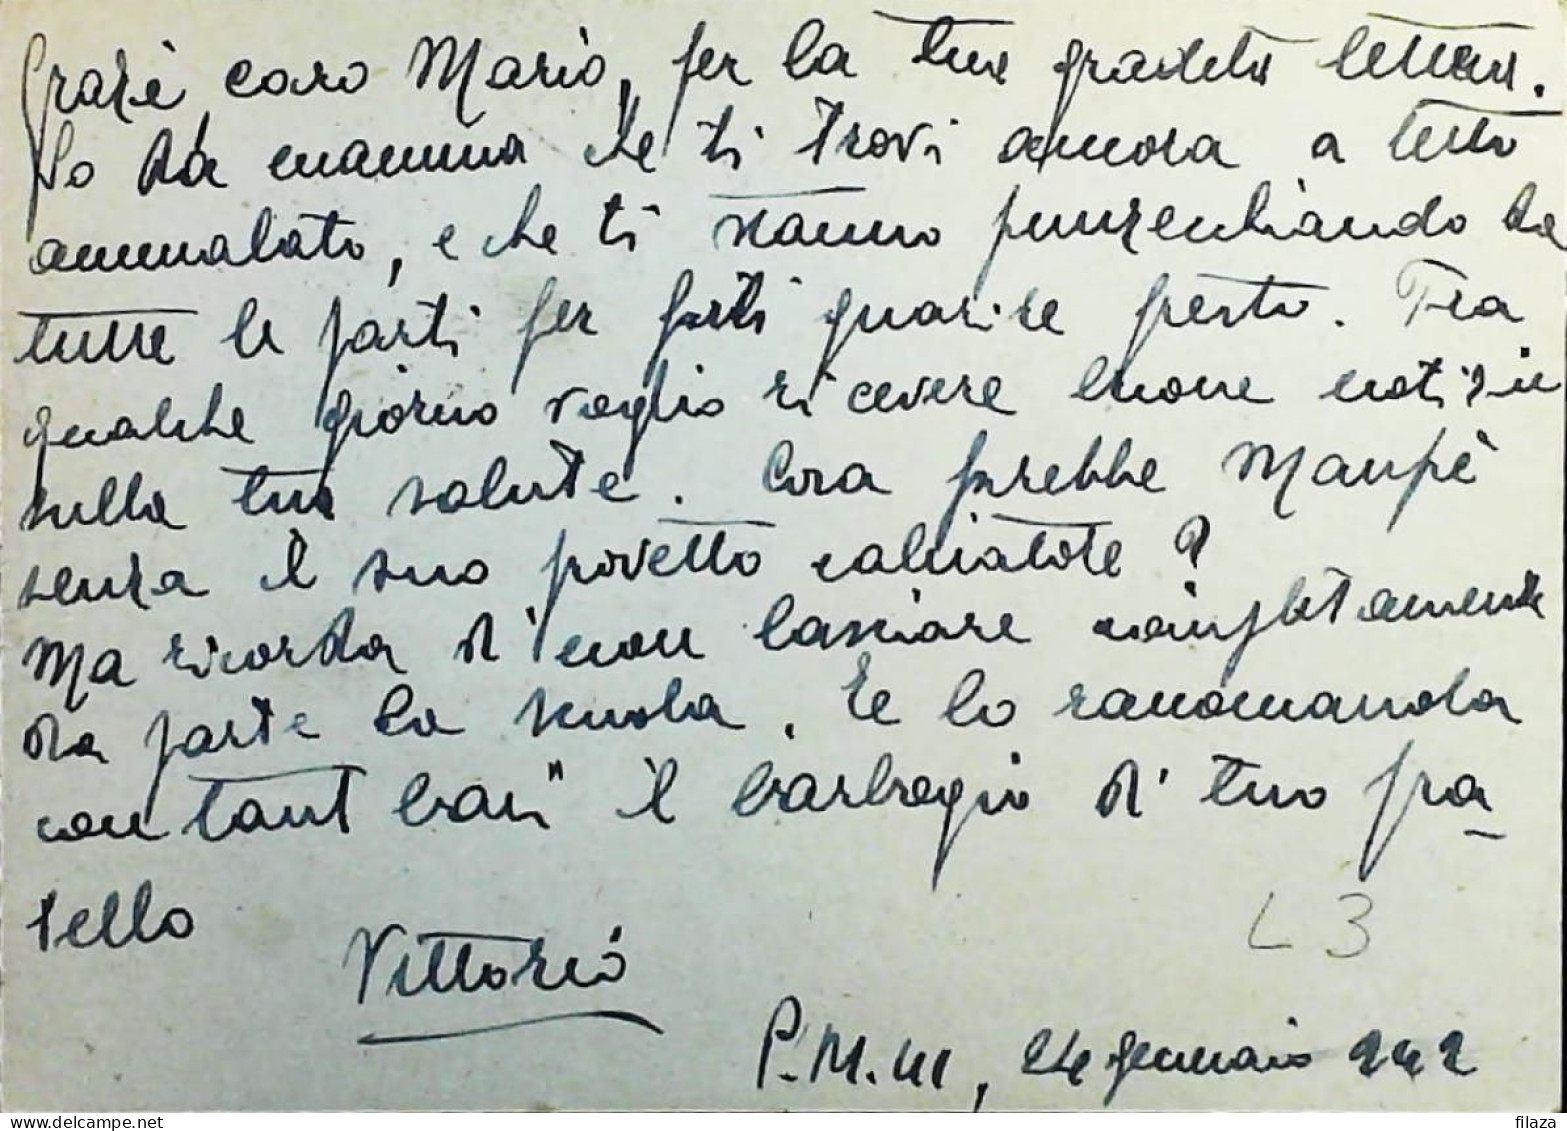 Grazie, caro Mario, per la tua gradita lettera.
So da mamma che ti trovi ancora a letto
ammalato, e che ti stanno punzecchiando da
tutte le parti per farti guarire presto. Fra
qualche giorno voglio ricevere buone notizie
sulla tua salute. Cosa farebbe Maupè
senza il suo provetto calciatore?
Ma ricorda di non lasciare completamente
da parte la scuola. Te lo raccomanda
con tanti baci il barbogio di tuo fra-
tello
Vittorio
L 3
P.M. 111, 24 gennaio 942
filaza